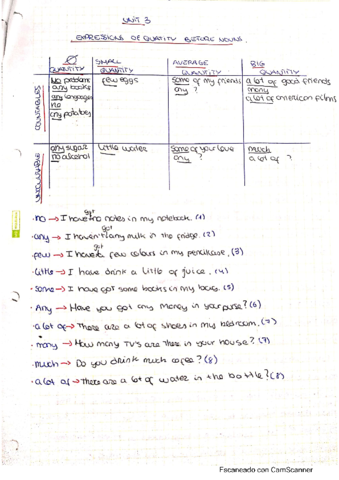 UNIT 3
EXPRESSIONS OF QUATITY BEFORE NOUNS.
Ø QUANTITY
SMALL QUANTITY
AVERAGE QUANTITY
BIG QUANTITY
COUNTABLES
No problems
any books
any languages
no
any potatoes
few eggs
some of my friends
any ?
a lot of good friends
many
a lot of american films
UNCOUNTABLE
any sugar
no alcohol
little water
some of your love
any ?
much
a lot of ?
· no → I have got no notes in my notebook. (1)
· any → I haven't got any milk in the fridge. (2)
· few → I have got a few colours in my pencilcase. (3)
· little → I have drink a little of juice. (4)
· some → I have got some books in my bag. (5)
· Any → Have you got any money in your purse? (6)
· a lot of → There are a lot of shoes in my bedroom. (7)
· many → How many TV's are there in your house? (7)
· much → Do you drink much coffee? (8)
· a lot of → There are a lot of water in the bottle? (8)
Escaneado con CamScanner